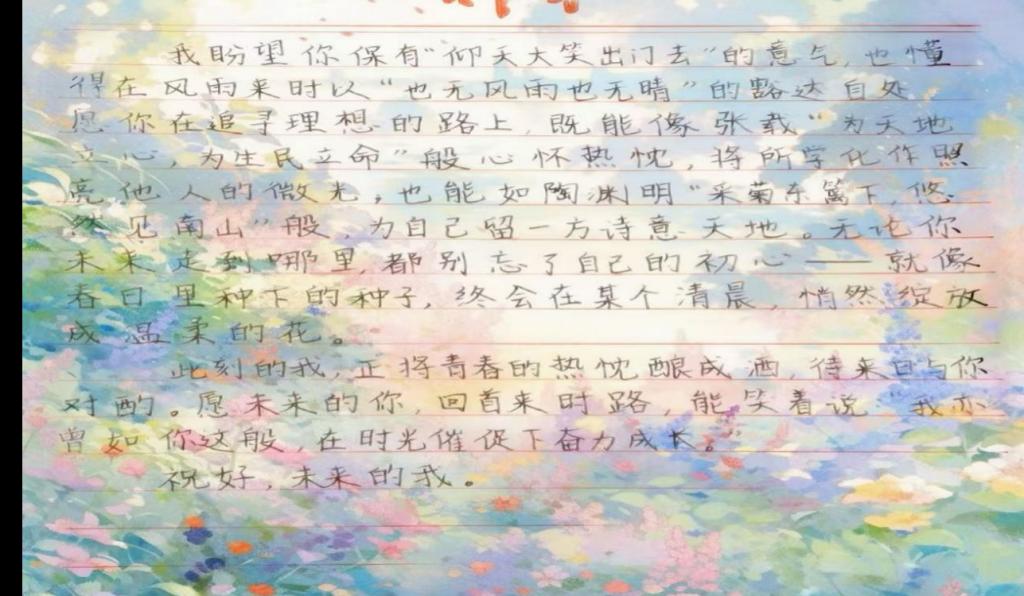 我盼望你保有“仰天大笑出门去”的意气，也懂
得在风雨来时以“也无风雨也无晴”的豁达自处
愿你在追寻理想的路上，既能像张载“为天地
立心，为生民立命”般心怀热忱，将所学化作照
亮他人的微光，也能如陶渊明“采菊东篱下，悠
然见南山”般，为自己留一方诗意天地。无论你
未来走到哪里，都别忘了自己的初心——就像
春日里种下的种子，终会在某个清晨，悄然绽放
成温柔的花。
此刻的我，正将青春的热忱酿成酒，待来日与你
对酌。愿未来的你，回首来时路，能笑着说“我亦
曾如你这般，在时光催促下奋力成长。”
祝好，未来的我。